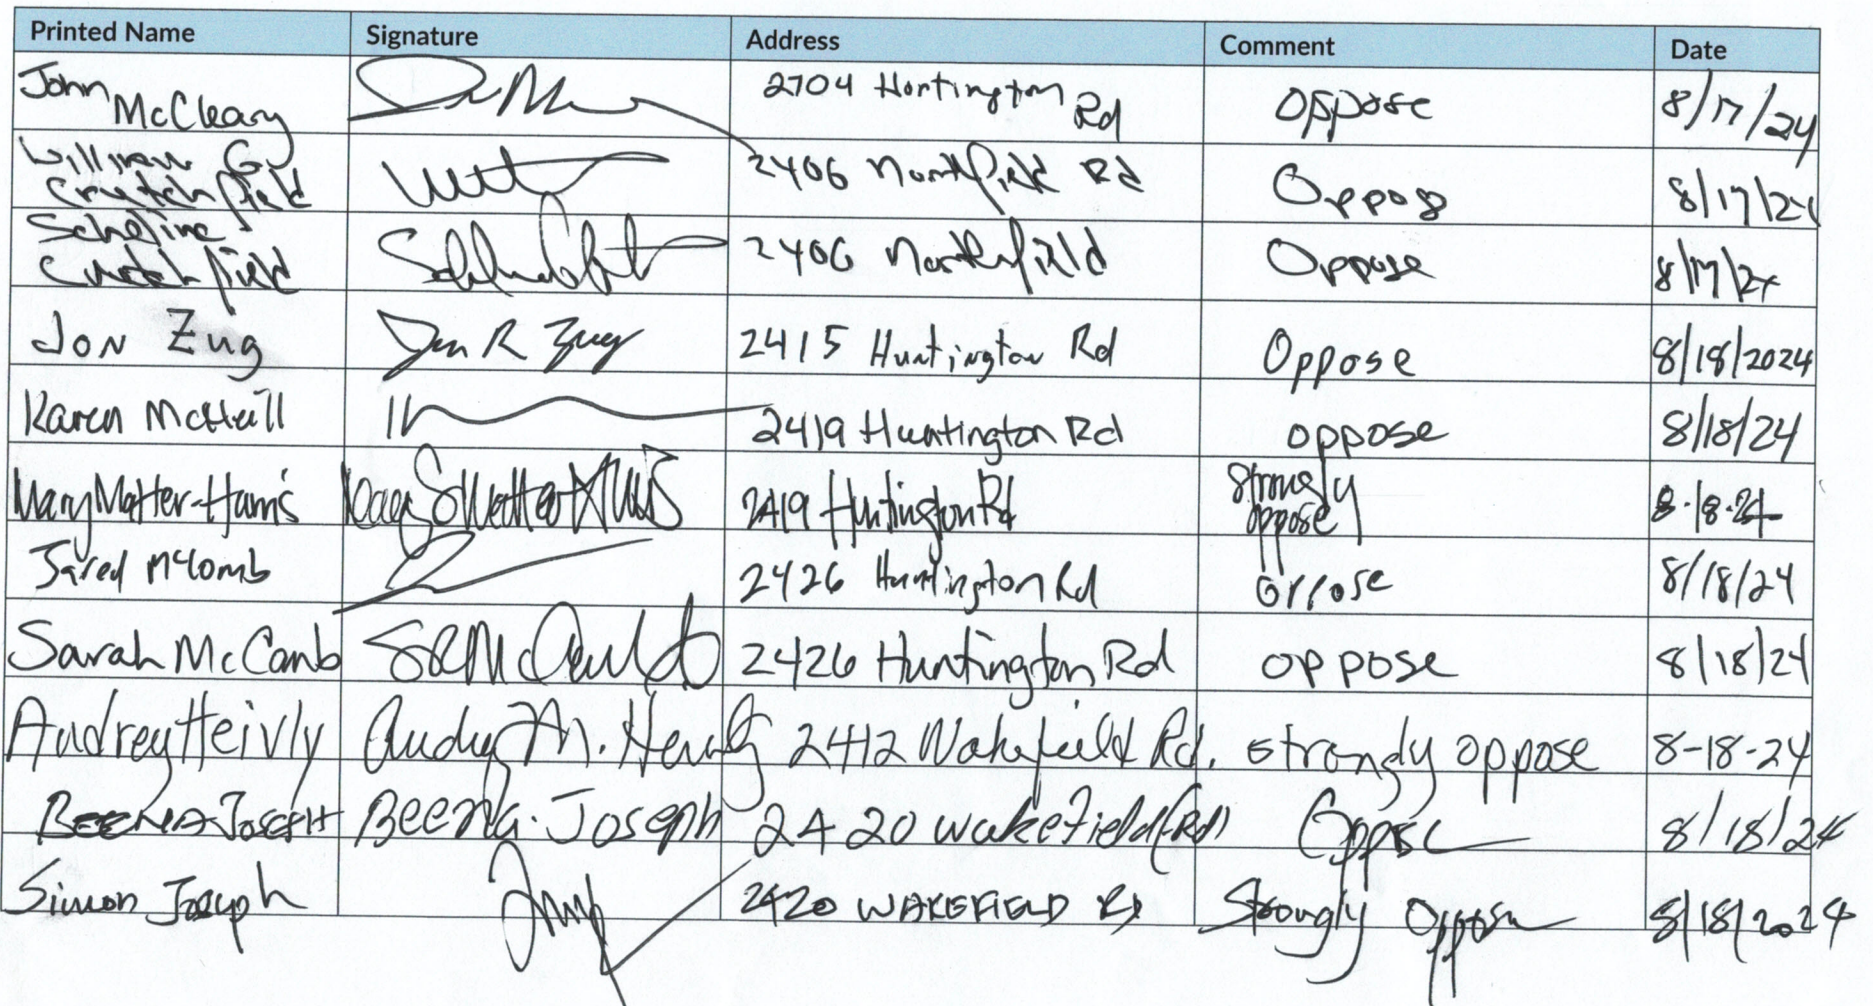 Printed Name Signature Address Comment Date
John McCleary 2704 Huntington Rd Oppose 8/17/24
William G. Crutchfield 2406 Northfield Rd Oppose 8/17/24
Crutchfield 2406 Northfield Oppose 8/17/24
Jon Zug Jon R Zug 2415 Huntington Rd Oppose 8/18/2024
Karen 2419 Huntington Rd oppose 8/18/24
Mary Motter-Harris 2419 Huntington Rd Strongly oppose 8-18-24
Jared McComb 2426 Huntington Rd Oppose 8/18/24
Sarah McComb 2426 Huntington Rd oppose 8/18/24
Audrey Heivly Audrey M. Heivly 2412 Wakefield Rd. strongly oppose 8-18-24
BEENA JOSEPH Beena. Joseph 2420 Wakefield (Rd) Oppose 8/18/24
Simon Joseph 2420 WAKEFIELD Rd Strongly Oppose 8/18/2024